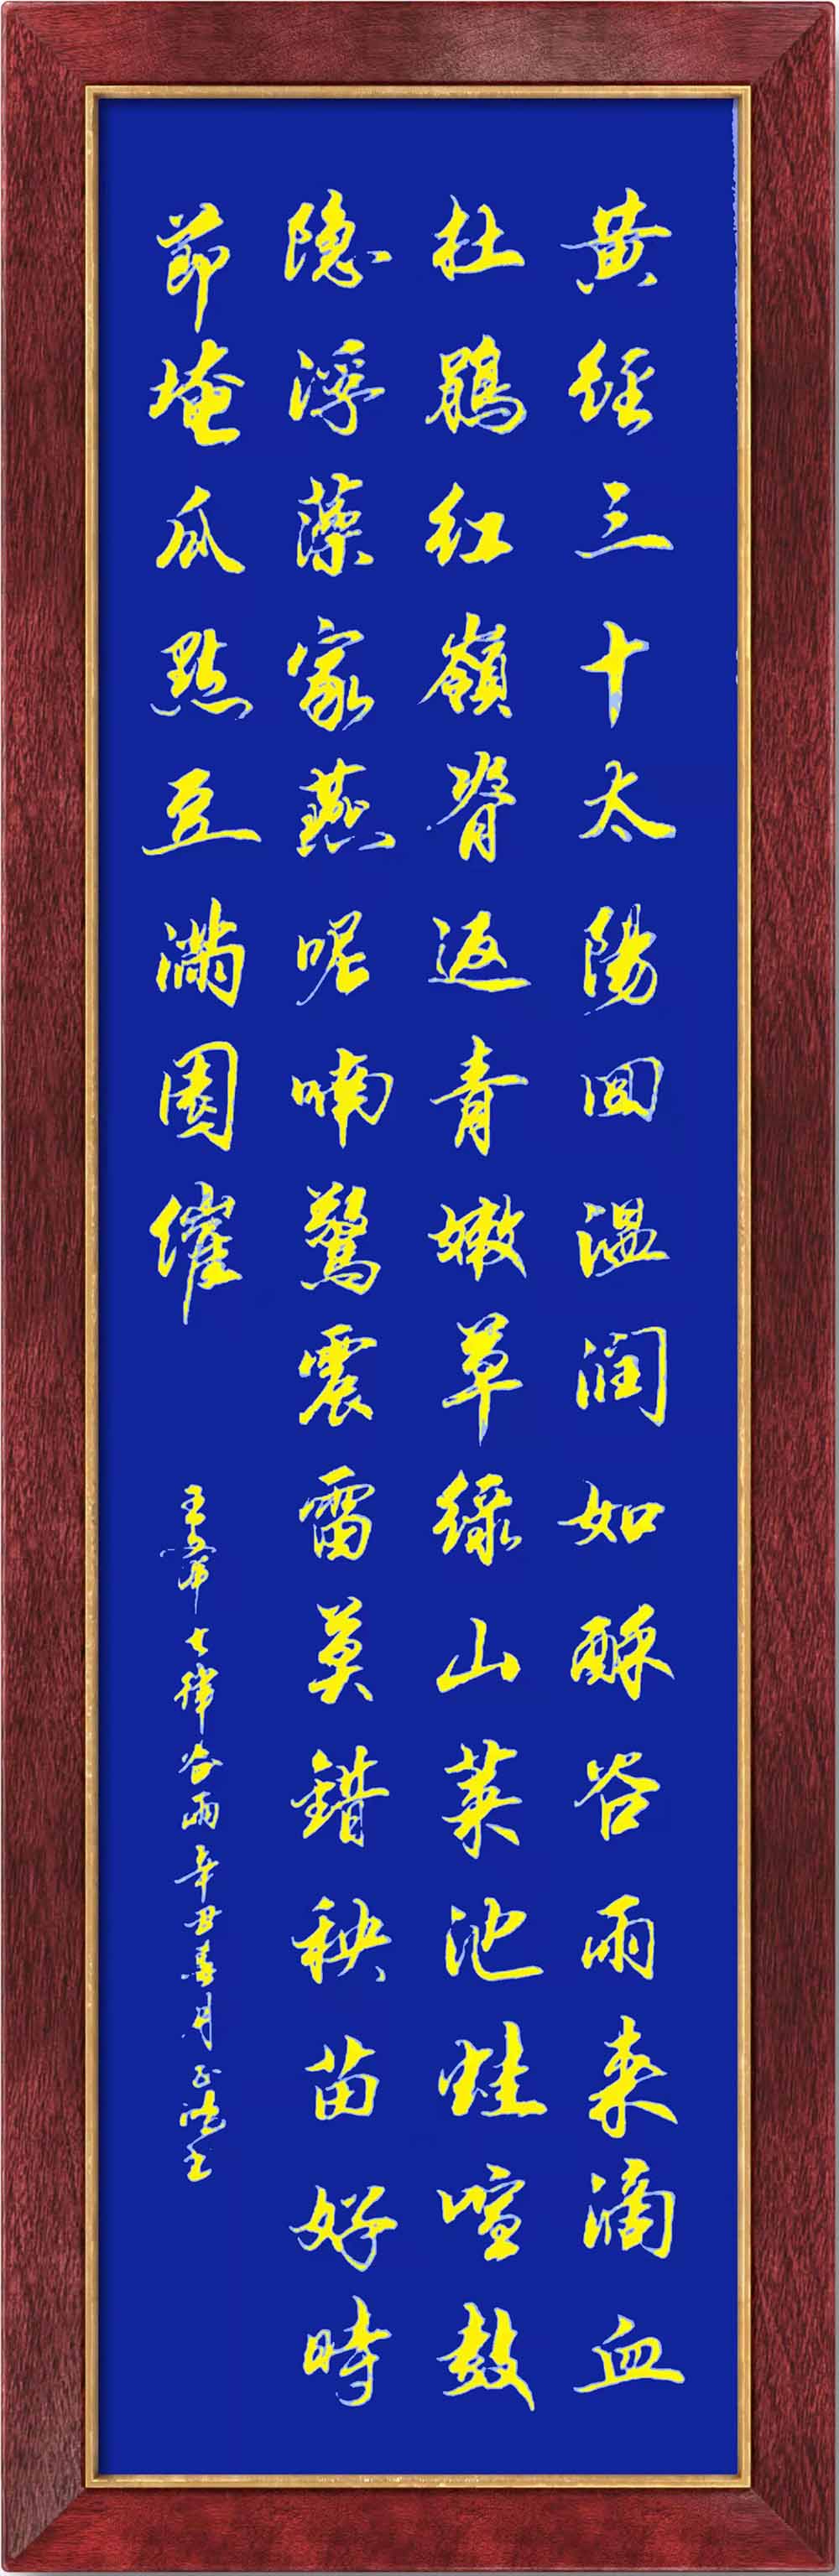 黄经三十太陽回温润如酥谷雨来滴血
杜鹃红嶺脊返青嫩草绿山菜池蛙喧鼓
隐浮藻家燕呢喃驚震雷莫錯秧苗好時
節埯瓜點豆满園催
七律谷雨辛丑春月